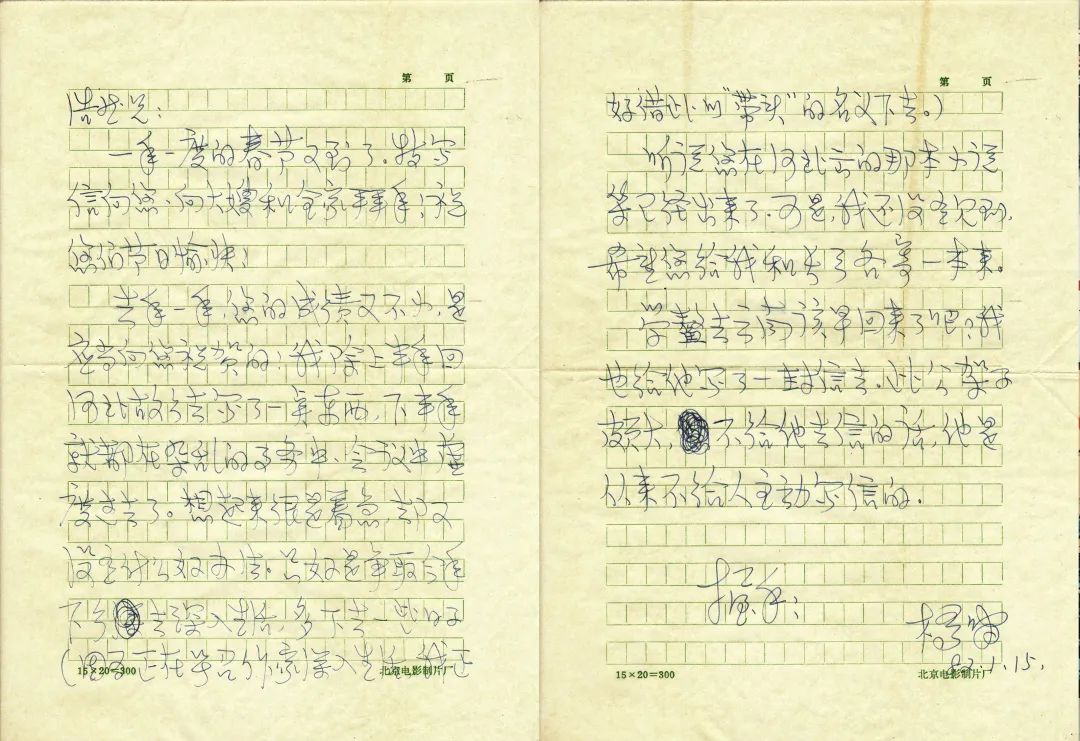 第　页
浩然兄：
一年一度的春节又到了。特写
信向您、向大嫂和全家拜年，祝
您们节日愉快！
去年一年，您的成绩又不小，是
应当向您祝贺的！我除上半年回
河北故乡去写了一集东西，下半年
就都在杂乱的事务中、会议中虚
度过去了。想起来很是着急，却又
没有什么好办法。只好是争取今年
下乡去深入生活，多下去一些日子
（正在号召作家深入生活，我正
15×20=300
北京电影制片厂
第　页
好借此以“带头”的名义下去。）
听说您在河北出的那本小说
集已经出来了。可是，我还没有见到，
希望您给我和各寄一本来。
学鳌去云南该早回来了吧？我
也给他写了一封信去。此公架子
颇大，不给他去信的话，他是
从来不给人主动写信的。
握手！
82.1.15.
15×20=300
北京电影制片厂